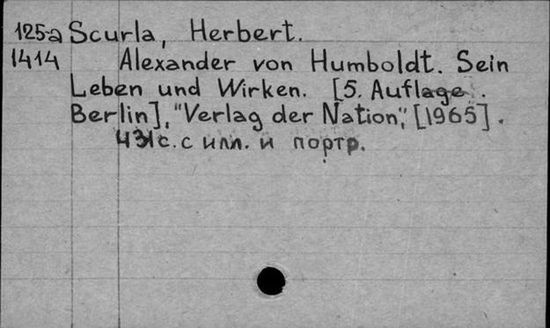 125-a Scurla, Herbert.
1414 Alexander von Humboldt. Sein
Leben und Wirken. [5. Auflage.
Berlin], "Verlag der Nation", [1965].
431 с. с илл. и портр.